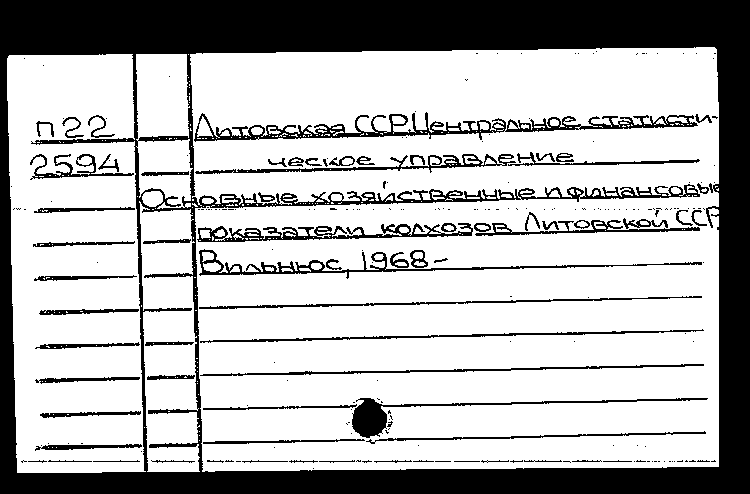 П22 Литовская ССР.Центральное статисти-
2594 ческое управление.
Основные хозяйственные и финансовые
показатели колхозов Литовской ССР.
Вильнюс, 1968-